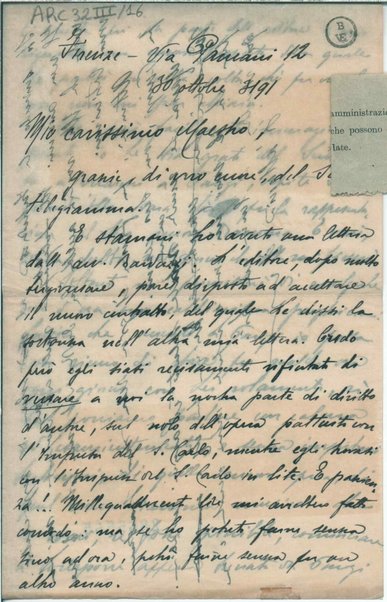 ARC 32 III/16
B
VE
Firenze - Via Panzani 12
30 ottobre 91
Mio carissimo Maestro,
amministrazio
che possono
late.
grazie, di vero cuore, del Suo
telegramma.
E stamani ho avuto una lettera
dall'avv. L'editore, dopo molto
pare disposto ad accettare
il nuovo contratto del quale Le dissi la
nell'altra mia lettera. Credo
però egli siasi recisamente rifiutato di
versare a noi la nostra parte di diritto
d'autore, sul nolo dell'opera pattuito con
l'Impresa del S. Carlo, mentre egli trovasi
con l'Impresa del S. Carlo in lite. E pazien
za!.. Millequattrocento lire mi avrebber fatto
comodo, ma se ho potuto farne senza
fino ad ora, potrò farne senza per un
altro anno.